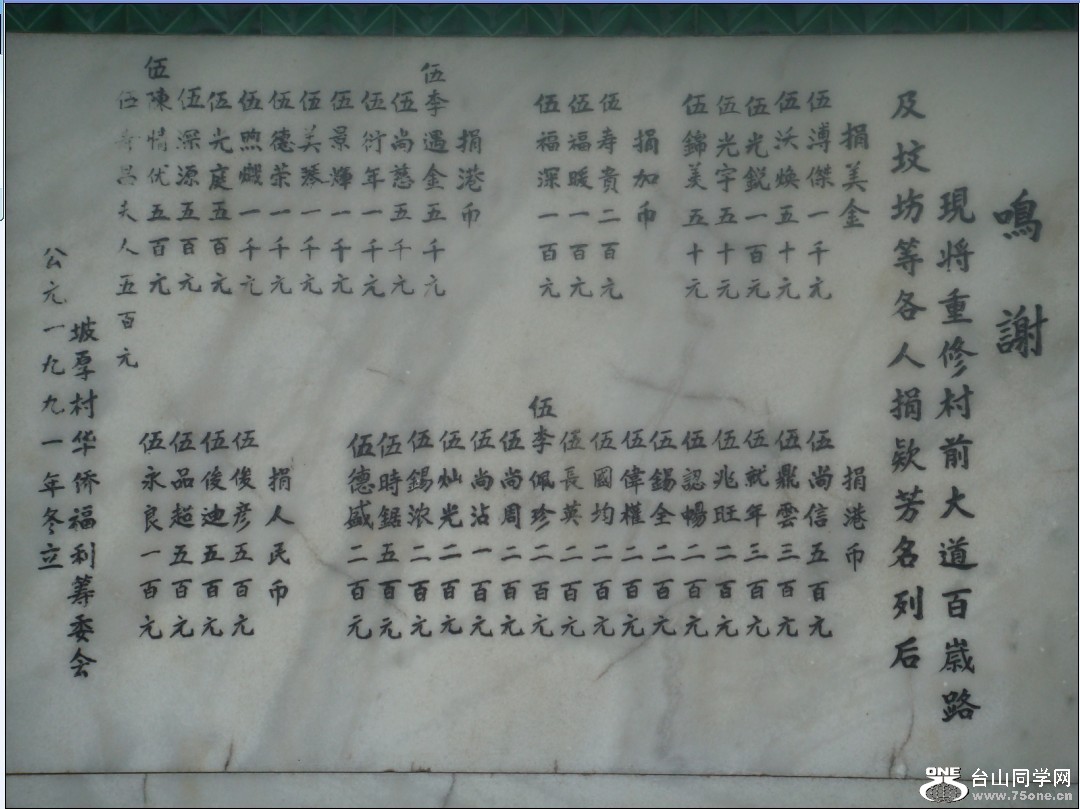 鳴謝
現將重修村前大道百嵗路
及坟坊等各人捐欵芳名列后
捐美金
伍溥傑一千元
伍沃煥五十元
伍光鋭一百元
伍光宇五十元
伍錦美五十元
捐加币
伍寿貴二百元
伍福暖一百元
伍福深一百元
捐港币
伍李遇金五千元
伍尚慈五千元
伍衍年一千元
伍景輝一千元
伍美琴一千元
伍德荣一千元
伍煦一千元
伍光庭五百元
伍深源五百元
伍陳情优五百元
伍昌夫人五百元
捐港币
伍尚信五百元
伍鼎雲三百元
伍就年三百元
伍兆旺二百元
伍認暢二百元
伍錫全二百元
伍偉權二百元
伍國均二百元
伍長英二百元
伍李佩珍二百元
伍尚周二百元
伍尚沾一百元
伍灿光二百元
伍錫浓二百元
伍時鋸五百元
伍德盛二百元
捐人民币
伍俊彦五百元
伍俊迪五百元
伍品超五百元
伍永良一百元
坡厚村华侨福利筹委会
公元一九九一年冬立
ONE
台山同学网
www.75one.cn